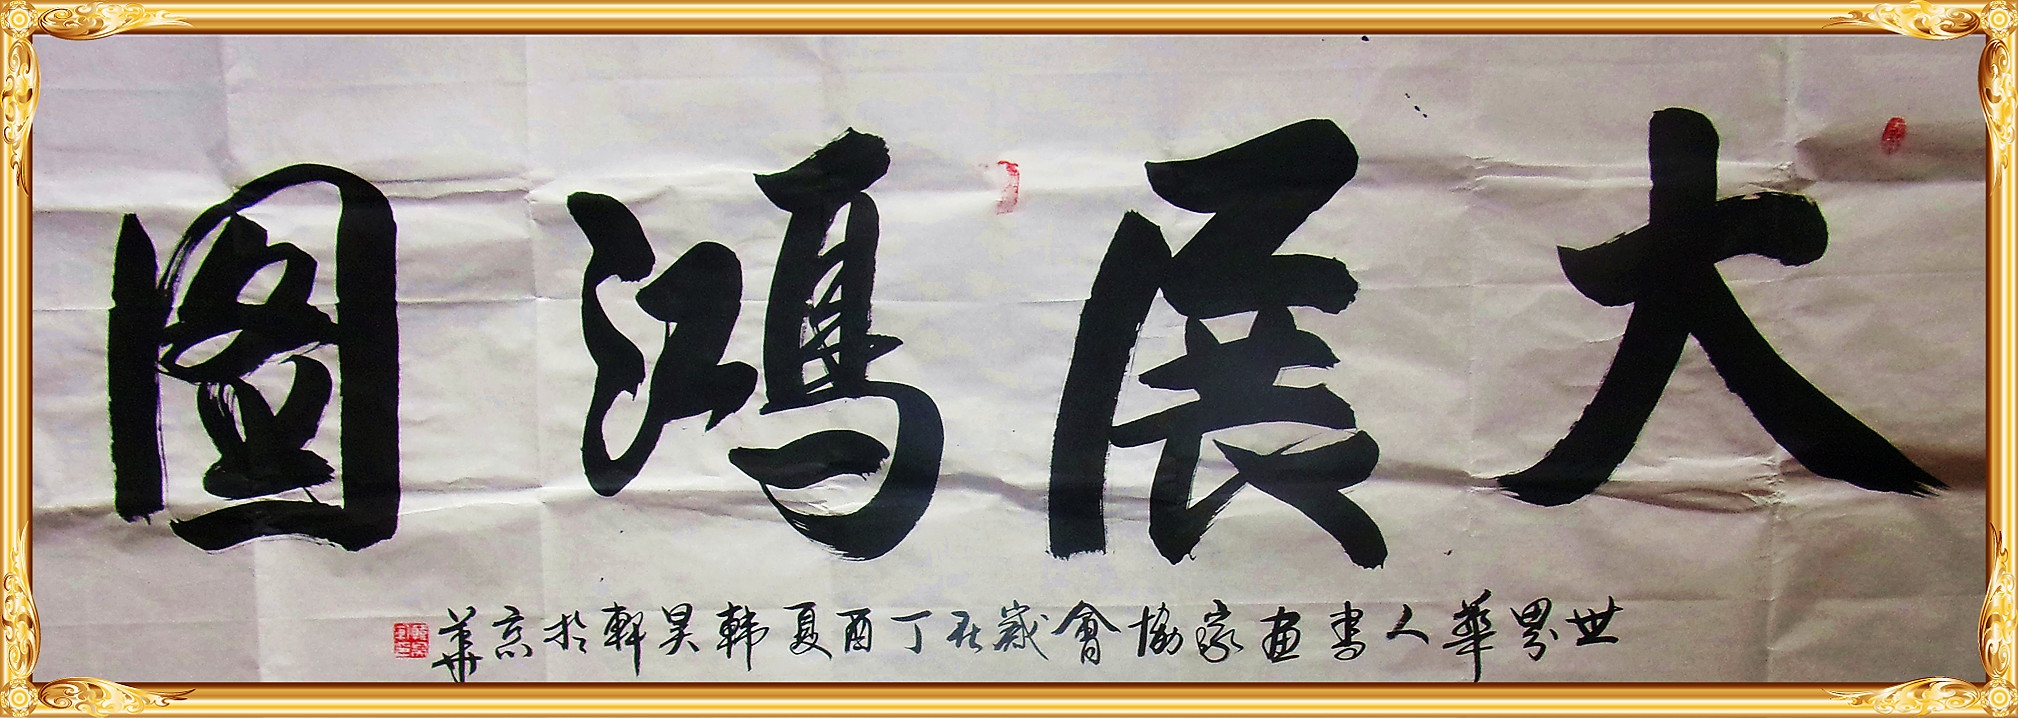 大展鴻圖
世界華人書画家協會歲在丁酉夏韩昊軒於京華